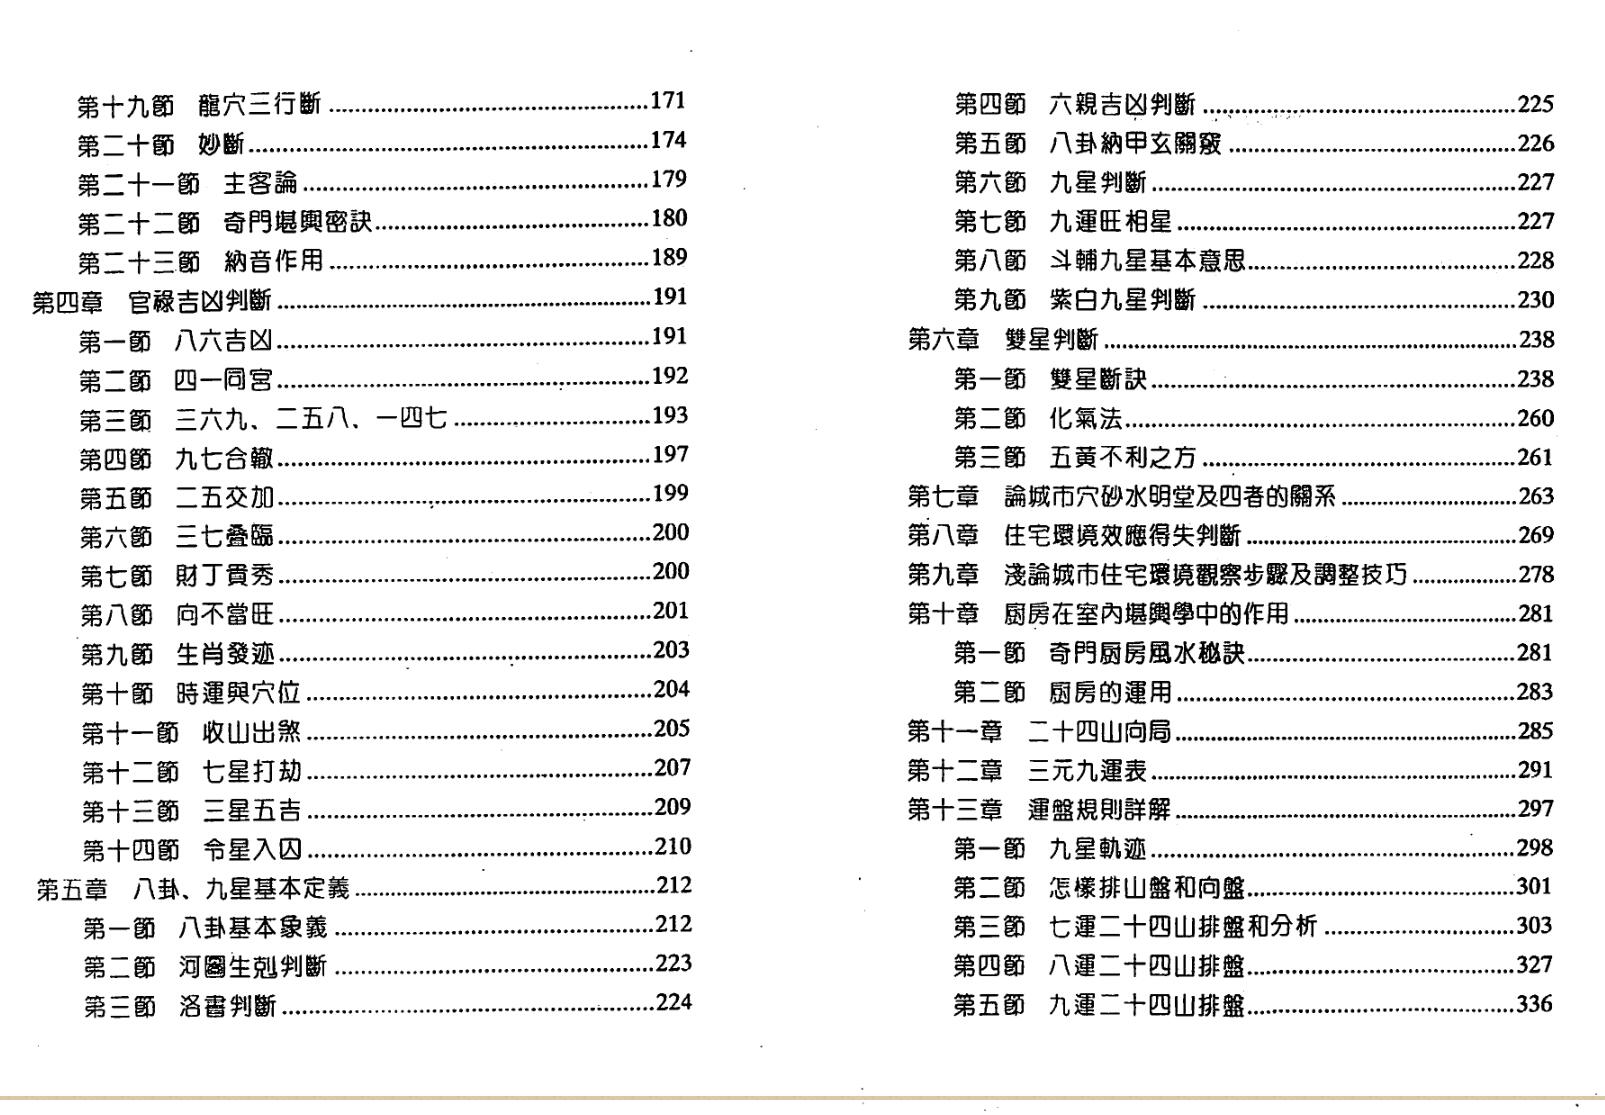 第十九節 龍穴三行斷……171
第二十節 妙斷……174
第二十一節 主客論……179
第二十二節 奇門堪輿密訣……180
第二十三節 納音作用……189
第四章 官祿吉凶判斷……191
第一節 八六吉凶……191
第二節 四一同宮……192
第三節 三六九、二五八、一四七……193
第四節 九七合轍……197
第五節 二五交加……199
第六節 三七叠臨……200
第七節 財丁貴秀……200
第八節 向不當旺……201
第九節 生肖發迹……203
第十節 時運與穴位……204
第十一節 收山出煞……205
第十二節 七星打劫……207
第十三節 三星五吉……209
第十四節 令星入囚……210
第五章 八卦、九星基本定義……212
第一節 八卦基本象義……212
第二節 河圖生剋判斷……223
第三節 洛書判斷……224
第四節 六親吉凶判斷……225
第五節 八卦納甲玄關竅……226
第六節 九星判斷……227
第七節 九運旺相星……227
第八節 斗輔九星基本意思……228
第九節 紫白九星判斷……230
第六章 雙星判斷……238
第一節 雙星斷訣……238
第二節 化氣法……260
第三節 五黃不利之方……261
第七章 論城市穴砂水明堂及四者的關系……263
第八章 住宅環境效應得失判斷……269
第九章 淺論城市住宅環境觀察步驟及調整技巧……278
第十章 厨房在室內堪輿學中的作用……281
第一節 奇門厨房風水秘訣……281
第二節 厨房的運用……283
第十一章 二十四山向局……285
第十二章 三元九運表……291
第十三章 運盤規則詳解……297
第一節 九星軌迹……298
第二節 怎樣排山盤和向盤……301
第三節 七運二十四山排盤和分析……303
第四節 八運二十四山排盤……327
第五節 九運二十四山排盤……336